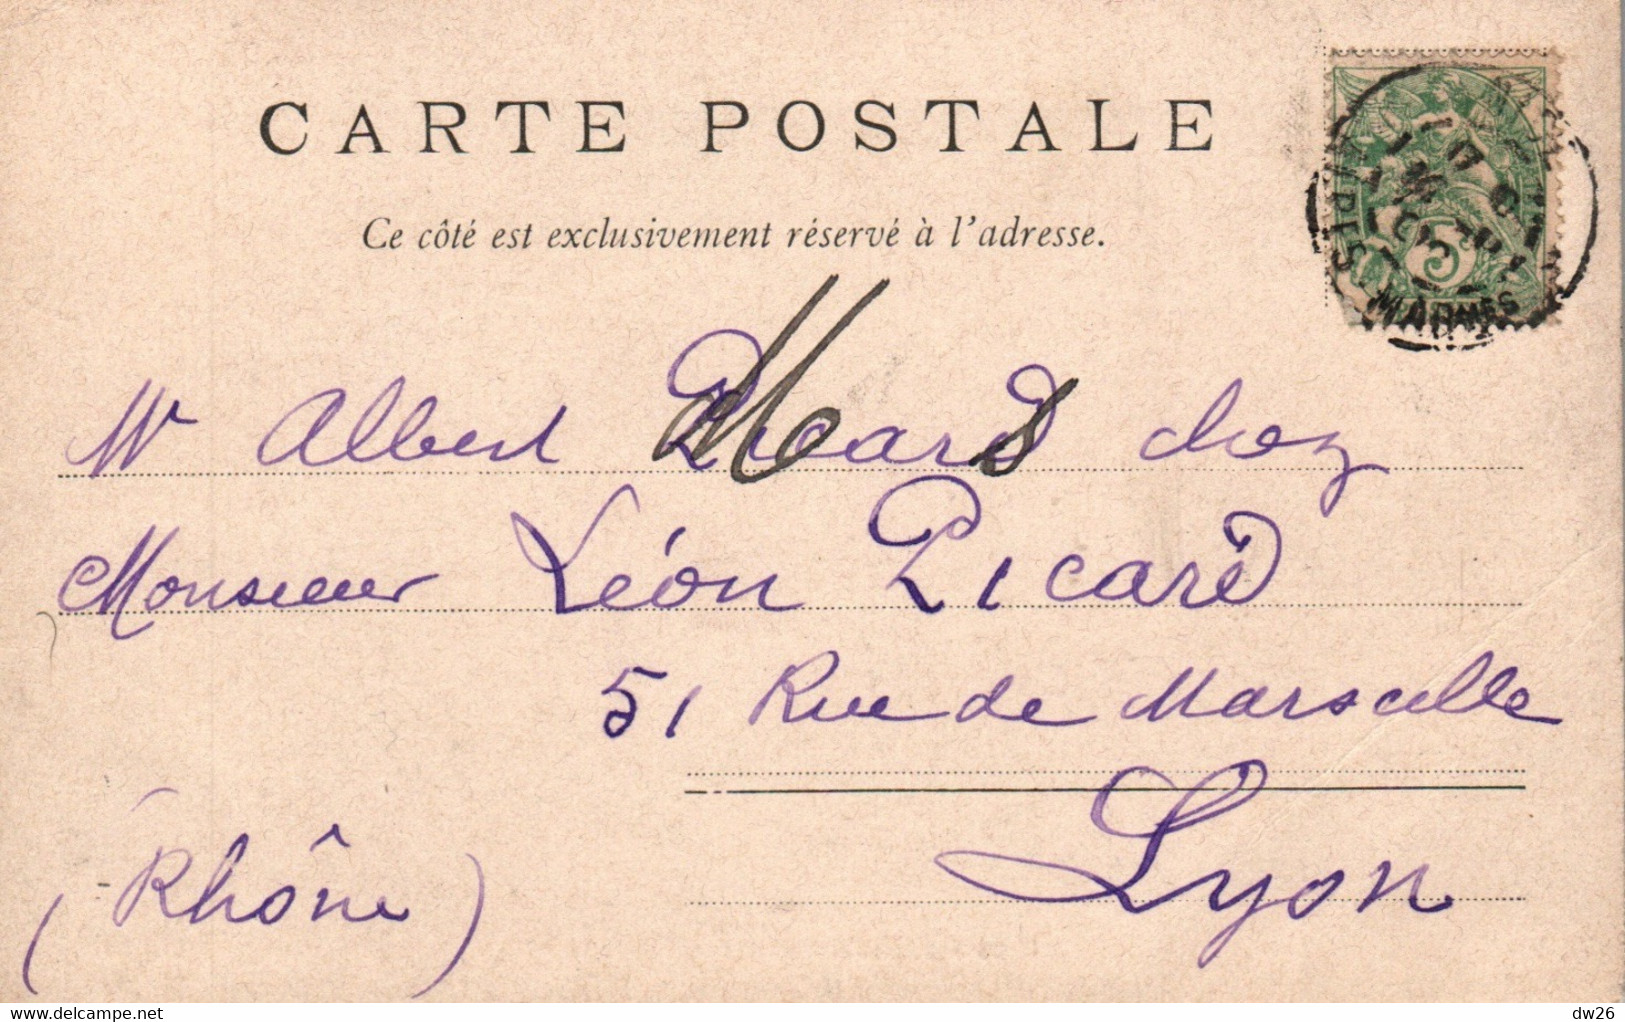 CARTE POSTALE
Ce côté est exclusivement réservé à l'adresse.
5
Mr Albert Picard chez
Monsieur Léon Picard
51 Rue de Marseille
Lyon
(Rhône)
www.delcampe.net
dw26